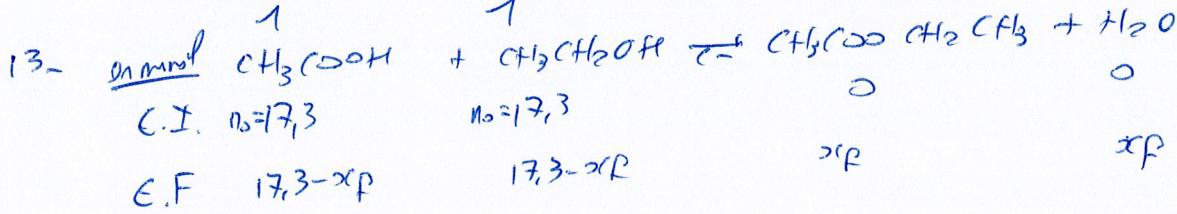 1 1
13- en mmol CH3COOH + CH3CH2OH ⇌ CH3COO CH2 CH3 + H2O
E.I. n0=17,3 n0=17,3 0 0
E.F 17,3-xf 17,3-xf xf xf